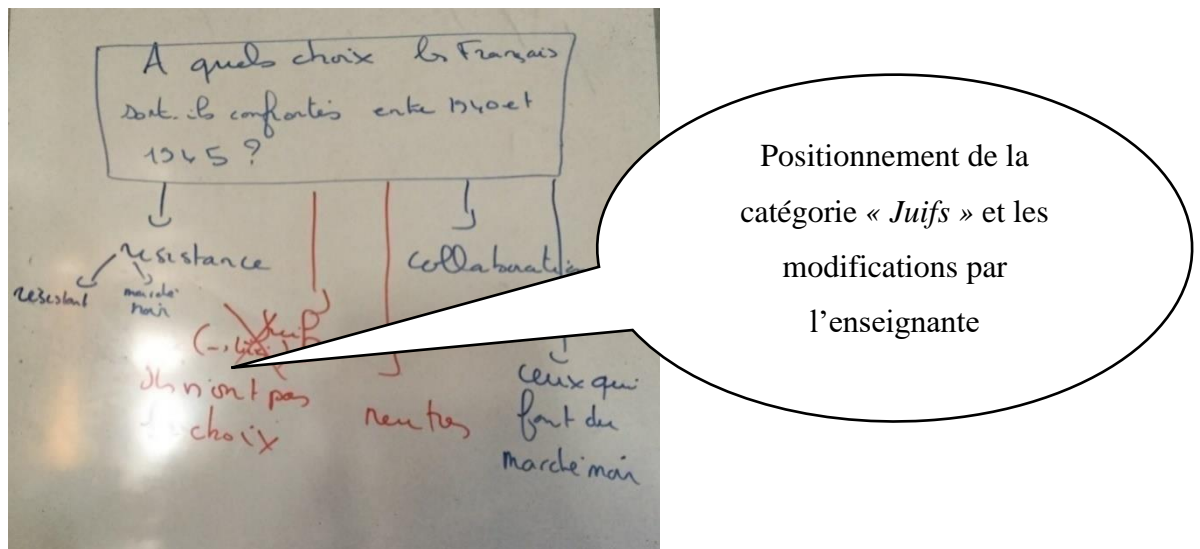 A quels choix les Français
sont-ils confrontés entre 1940 et
1945 ?
résistance
collaboratio
résistant
marché
noir
Juif
Ils n'ont pas
choix
neutres
ceux qui
font du
marché noir
Positionnement de la
catégorie « Juifs » et les
modifications par
l'enseignante